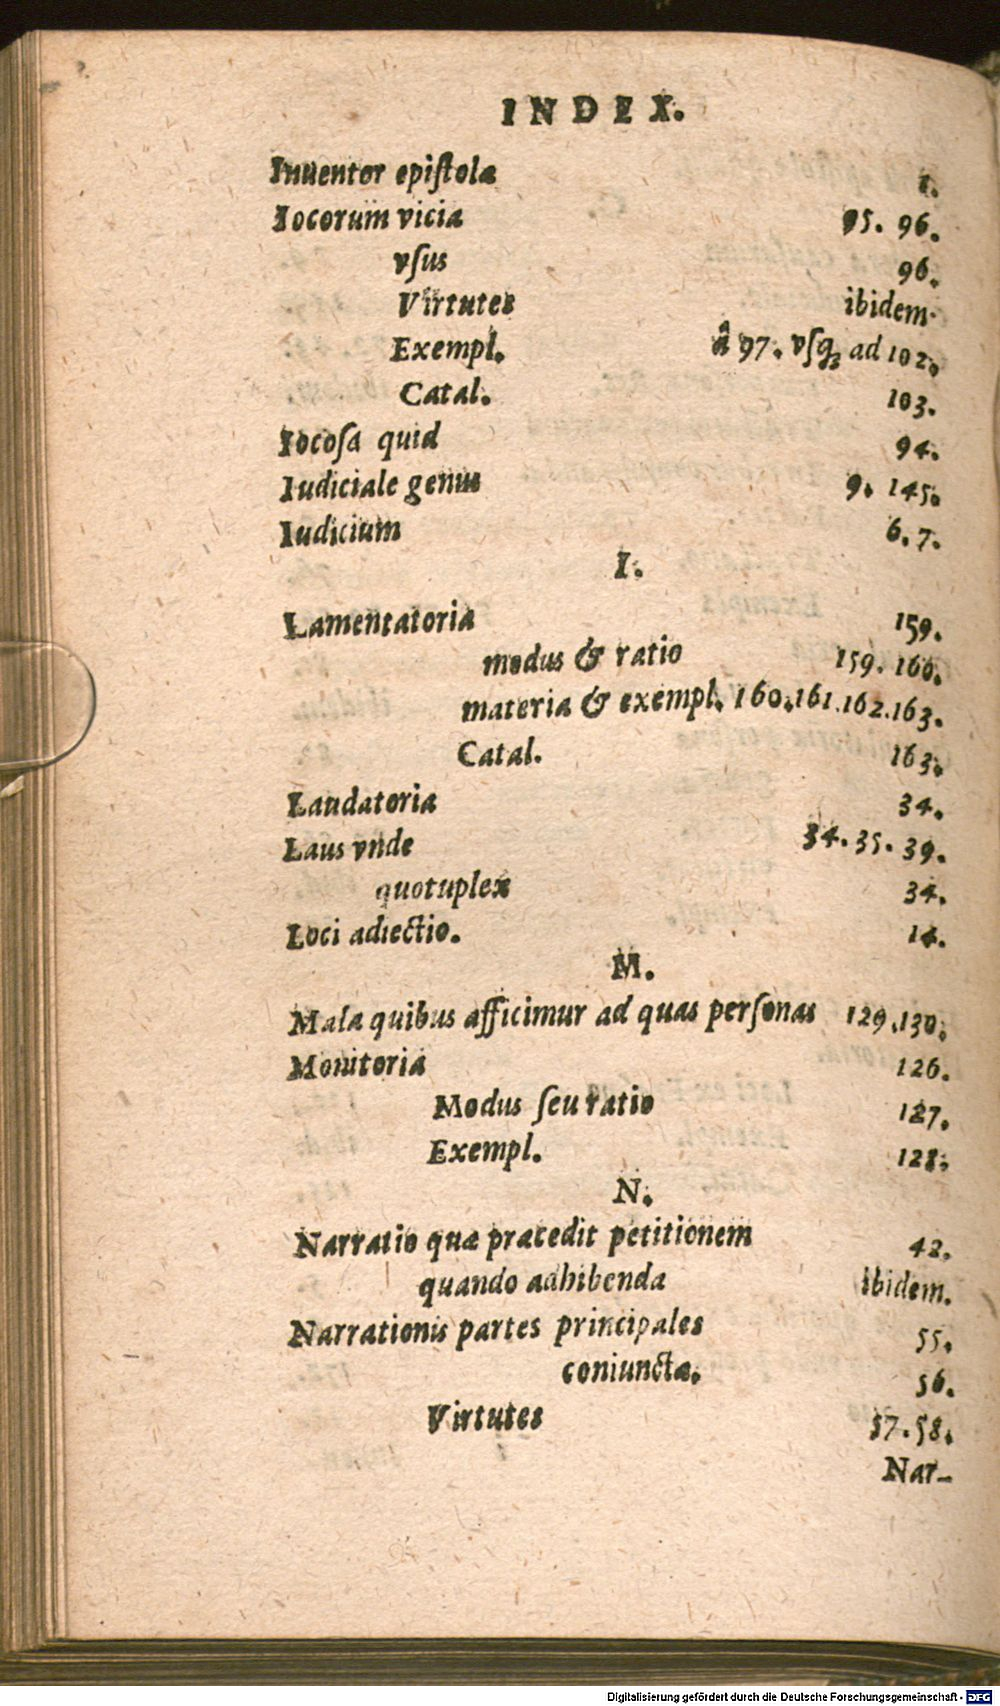 INDEX.
Inuentor epiſtolæ 1.
Iocorum vicia 95. 96.
vſus 96.
Virtutes ibidem.
Exempl. â 97. vſq; ad 102.
Catal. 103.
Iocoſa quid 94.
Iudiciale genus 9. 145.
Iudicium 6. 7.
I.
Lamentatoria 159.
modus & ratio 159. 160.
materia & exempl. 160.161.162.163.
Catal. 163.
Laudatoria 34.
Laus vnde 34. 35. 39.
quotuplex 34.
Loci adiectio. 14.
M.
Mala quibus afficimur ad quas perſonas 129.130.
Monitoria 126.
Modus ſeu ratio 127.
Exempl. 128.
N.
Narratio quæ præcedit petitionem 42.
quando adhibenda ibidem.
Narrationis partes principales 55.
coniunctæ. 56.
Virtutes 57. 58.
Nar-
Digitalisierung gefördert durch die Deutsche Forschungsgemeinschaft - DFG